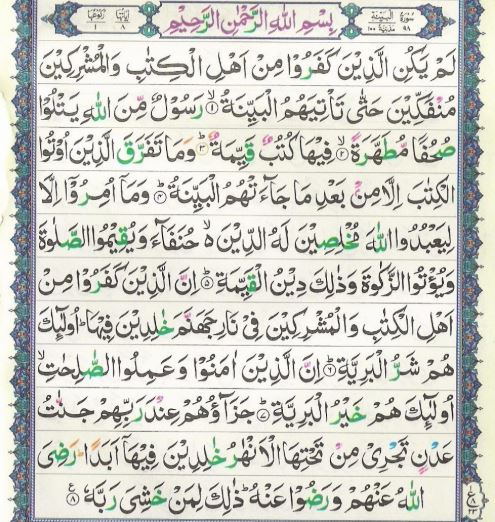 سورة البينة ٩٨ مدنية ١٠٠ بِسْمِ اللهِ الرَّحْمٰنِ الرَّحِيْمِ اٰیاتها ٨ رکوعها ١
لَمْ يَكُنِ الَّذِيْنَ كَفَرُوْا مِنْ اَهْلِ الْكِتٰبِ وَالْمُشْرِكِيْنَ
مُنْفَكِّيْنَ حَتّٰى تَاْتِيَهُمُ الْبَيِّنَةُ ۙ‏﴿١﴾ رَسُوْلٌ مِّنَ اللّٰهِ يَتْلُوْا
صُحُفًا مُّطَهَّرَةً ۙ‏﴿٢﴾ فِيْهَا كُتُبٌ قَيِّمَةٌ ؕ‏﴿٣﴾ وَمَا تَفَرَّقَ الَّذِيْنَ اُوْتُوا
الْكِتٰبَ اِلَّا مِنْۢ بَعْدِ مَا جَآءَتْهُمُ الْبَيِّنَةُ ؕ‏﴿٤﴾ وَمَاۤ اُمِرُوْۤا اِلَّا
لِيَعْبُدُوا اللّٰهَ مُخْلِصِيْنَ لَهُ الدِّيْنَ ۙ۬ حُنَفَآءَ وَيُقِيْمُوا الصَّلٰوةَ
وَيُؤْتُوا الزَّكٰوةَ وَذٰلِكَ دِيْنُ الْقَيِّمَةِ ؕ‏﴿٥﴾ اِنَّ الَّذِيْنَ كَفَرُوْا مِنْ
اَهْلِ الْكِتٰبِ وَالْمُشْرِكِيْنَ فِيْ نَارِ جَهَنَّمَ خٰلِدِيْنَ فِيْهَا ؕ اُولٰٓئِكَ
هُمْ شَرُّ الْبَرِيَّةِ ؕ‏﴿٦﴾ اِنَّ الَّذِيْنَ اٰمَنُوْا وَعَمِلُوا الصّٰلِحٰتِ ۙ
اُولٰٓئِكَ هُمْ خَيْرُ الْبَرِيَّةِ ؕ‏﴿٧﴾ جَزَآؤُهُمْ عِنْدَ رَبِّهِمْ جَنّٰتُ
عَدْنٍ تَجْرِيْ مِنْ تَحْتِهَا الْاَنْهٰرُ خٰلِدِيْنَ فِيْهَاۤ اَبَدًا ؕ رَضِيَ
اللّٰهُ عَنْهُمْ وَرَضُوْا عَنْهُ ؕ ذٰلِكَ لِمَنْ خَشِيَ رَبَّهٗ ‏﴿٨﴾ ع